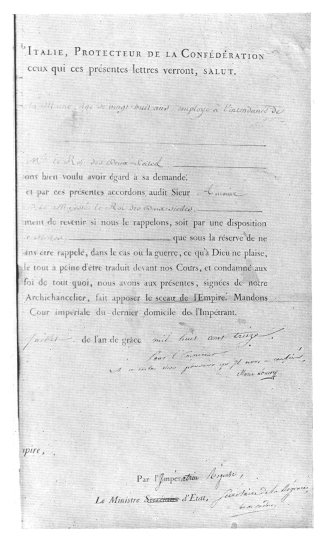 ITALIE, PROTECTEUR DE LA CONFÉDÉRATION
ceux qui ces présentes lettres verront, SALUT.
âgé de vingt huit ans employé à l'intendance de
le Roi des Deux Siciles
ons bien voulu avoir égard à sa demande.
et par ces présentes accordons audit Sieur
Majesté le Roi des Deux Siciles
ment de revenir si nous le rappelons, soit par une disposition
que sous la réserve de ne
ans être rappelé, dans le cas ou la guerre, ce qu'à Dieu ne plaise,
le tout a peine d'être traduit devant nos Cours, et condamné aux
foi de tout quoi, nous avons aux présentes, signées de notre
Archichancelier, fait apposer le sceau de l'Empire. Mandons
Cour impériale du dernier domicile de l'Impétrant.
de l'an de grâce mil huit cent treize
Pour l'Empereur
et en vertu des pouvoirs qu'il nous a confiés,
Marie Louise
npire,
Par l'Impératrice Régente,
Le Ministre Secrétaire d'Etat, Secrétaire de la Régence